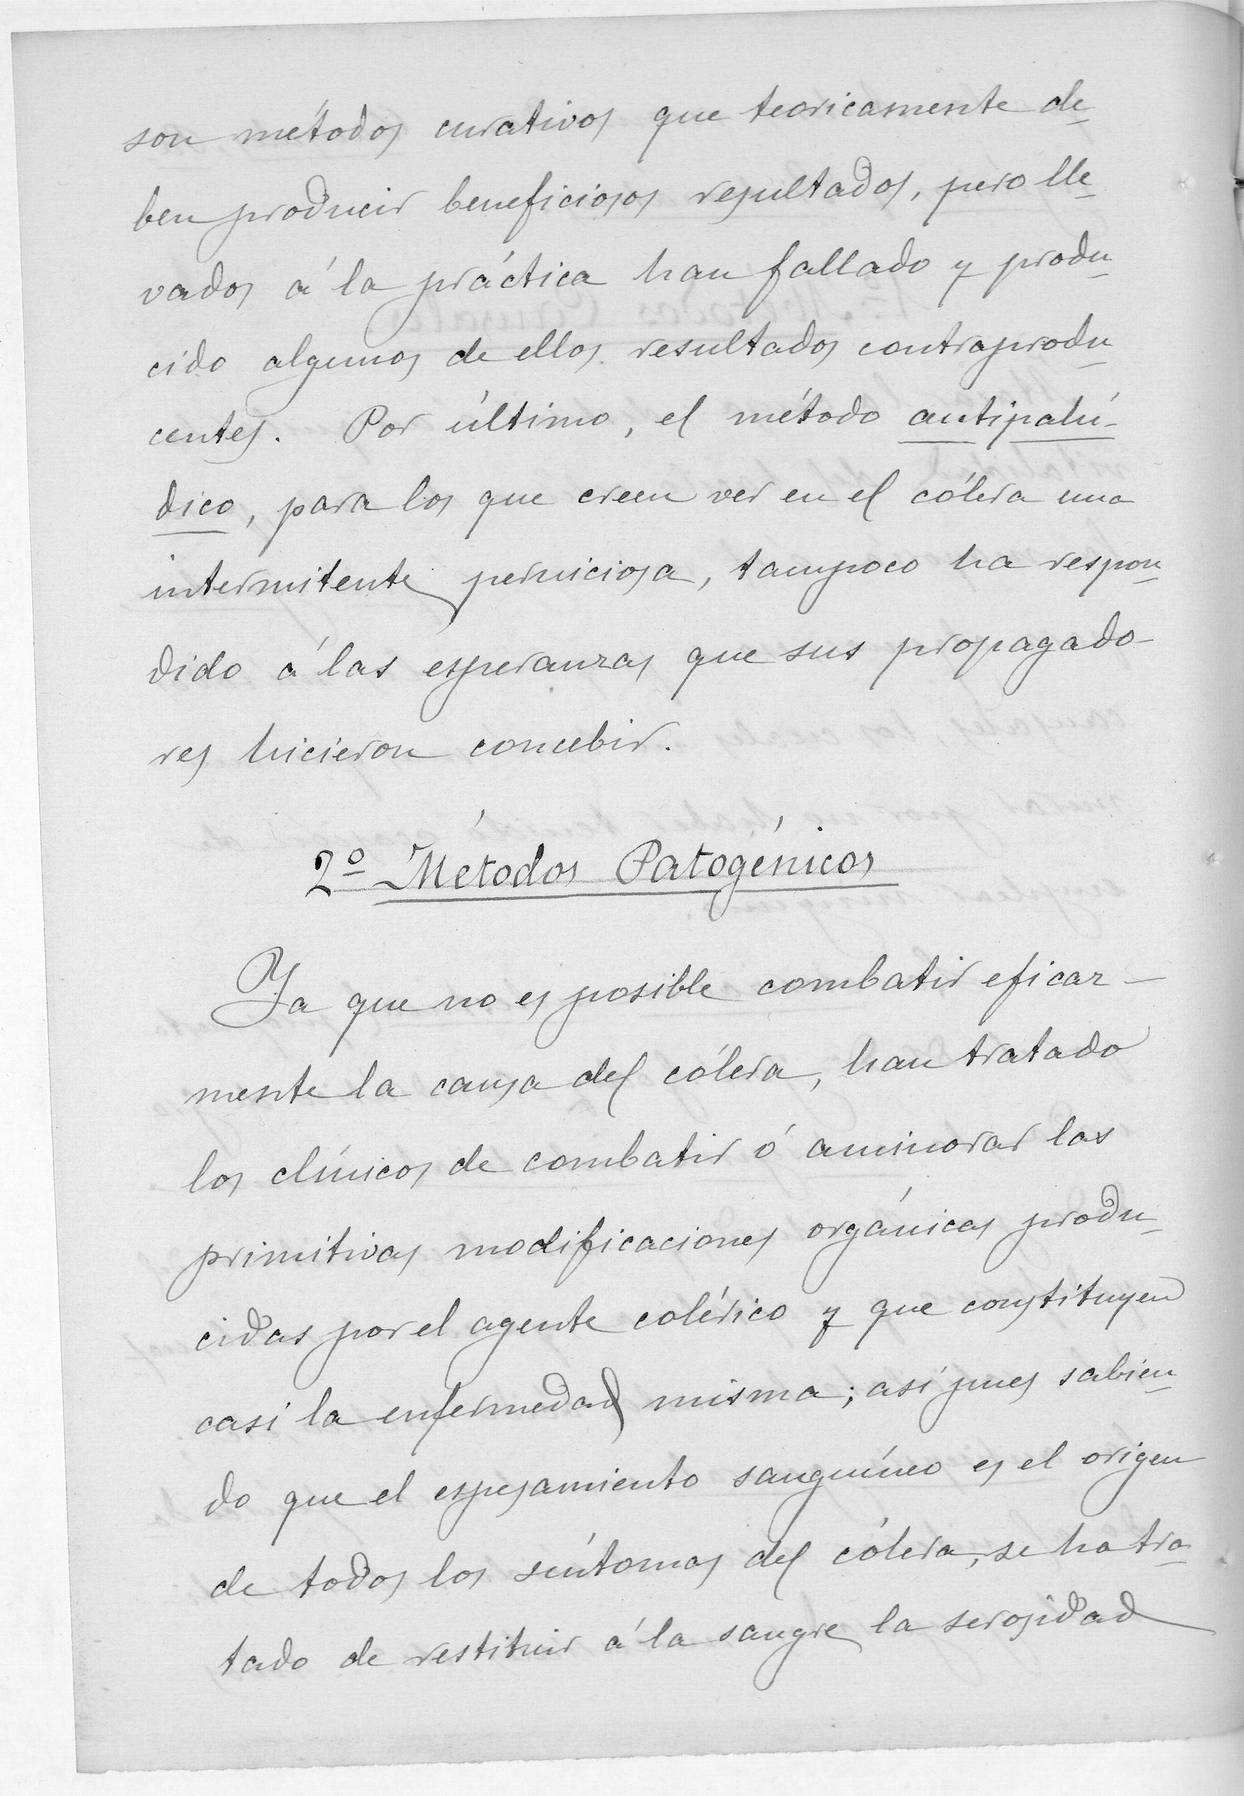 son métodos curativos que teoricamente de-
ben producir beneficiosos resultados, pero lle-
vados á la práctica han fallado y produ-
cido algunos de ellos resultados contraprodu-
centes. Por último, el método antipalú-
dico, para los que creen ver en el cólera una
intermitente perniciosa, tampoco ha respon-
dido á las esperanzas que sus propagado-
res hicieron concebir.
2º Métodos Patogénicos
Ya que no es posible combatir eficaz-
mente la causa del cólera, han tratado
los clínicos de combatir ó aminorar las
primitivas modificaciones orgánicas produ-
cidas por el agente colérico y que constituyen
casi la enfermedad misma; así pues sabien-
do que el espesamiento sanguíneo es el origen
de todos los síntomas del cólera, se ha tra-
tado de restituir á la sangre la serosidad